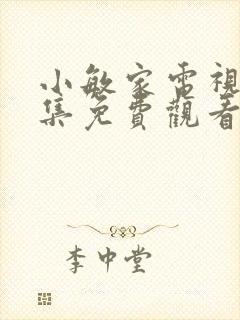 小敏家電視
集免費觀看
李中堂